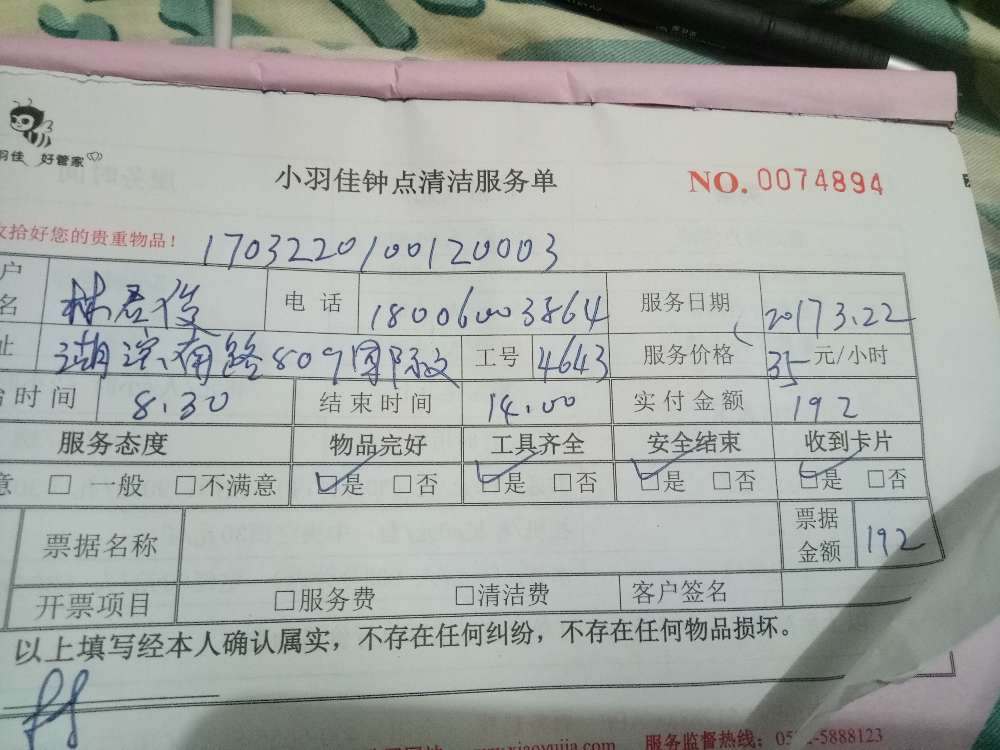 羽佳 好管家
小羽佳钟点清洁服务单 NO. 0074894
收拾好您的贵重物品!
1703220100120003
户名 林君俊 电话 18006003864 服务日期 2017 3.22
址 湖滨南路809 工号 4643 服务价格 35 元/小时
时间 8.30 结束时间 14.00 实付金额 192
服务态度 物品完好 工具齐全 安全结束 收到卡片
意 □ 一般 □不满意 □是 □否 □是 □否 □是 □否 □是 □否
票据名称 票据金额 192
开票项目 □服务费 □清洁费 客户签名
以上填写经本人确认属实，不存在任何纠纷，不存在任何物品损坏。
www.xiaoyujia.com 服务监督热线：05 -5888123